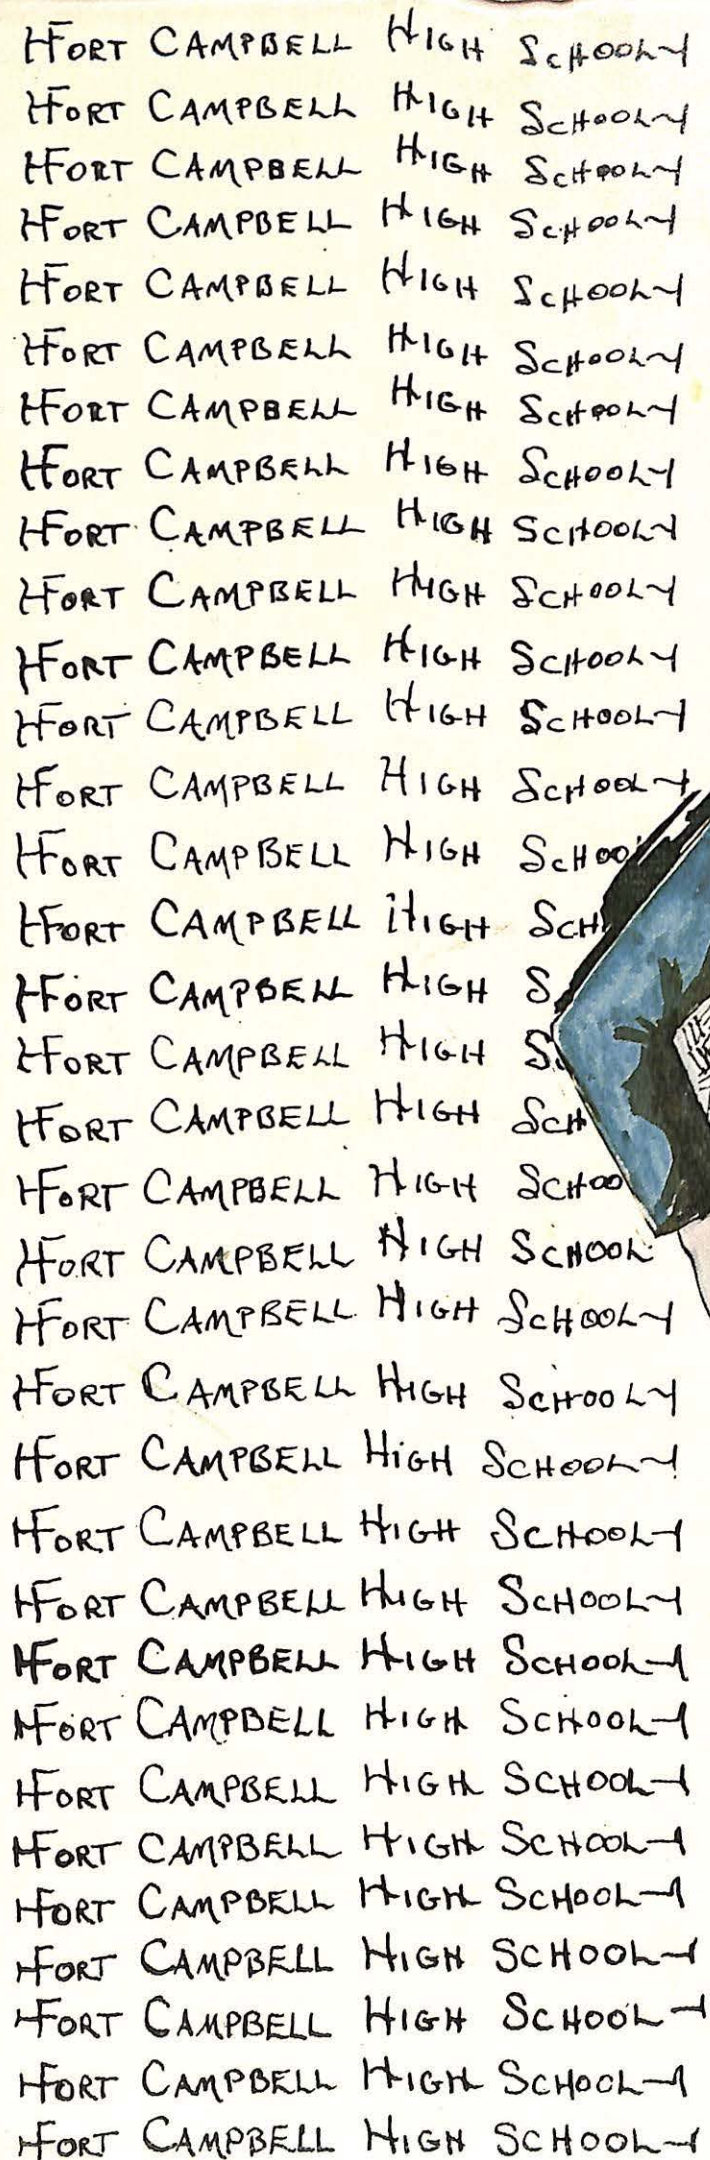 FORT CAMPBELL HIGH SCHOOL
FORT CAMPBELL HIGH SCHOOL
FORT CAMPBELL HIGH SCHOOL
FORT CAMPBELL HIGH SCHOOL
FORT CAMPBELL HIGH SCHOOL
FORT CAMPBELL HIGH SCHOOL
FORT CAMPBELL HIGH SCHOOL
FORT CAMPBELL HIGH SCHOOL
FORT CAMPBELL HIGH SCHOOL
FORT CAMPBELL HIGH SCHOOL
FORT CAMPBELL HIGH SCHOOL
FORT CAMPBELL HIGH SCHOOL
FORT CAMPBELL HIGH SCHOOL
FORT CAMPBELL HIGH SCHOO
FORT CAMPBELL HIGH SCH
FORT CAMPBELL HIGH S
FORT CAMPBELL HIGH S
FORT CAMPBELL HIGH SCH
FORT CAMPBELL HIGH SCHOO
FORT CAMPBELL HIGH SCHOOL
FORT CAMPBELL HIGH SCHOOL
FORT CAMPBELL HIGH SCHOOL
FORT CAMPBELL HIGH SCHOOL
FORT CAMPBELL HIGH SCHOOL
FORT CAMPBELL HIGH SCHOOL
FORT CAMPBELL HIGH SCHOOL
FORT CAMPBELL HIGH SCHOOL
FORT CAMPBELL HIGH SCHOOL
FORT CAMPBELL HIGH SCHOOL
FORT CAMPBELL HIGH SCHOOL
FORT CAMPBELL HIGH SCHOOL
FORT CAMPBELL HIGH SCHOOL
FORT CAMPBELL HIGH SCHOOL
FORT CAMPBELL HIGH SCHOOL